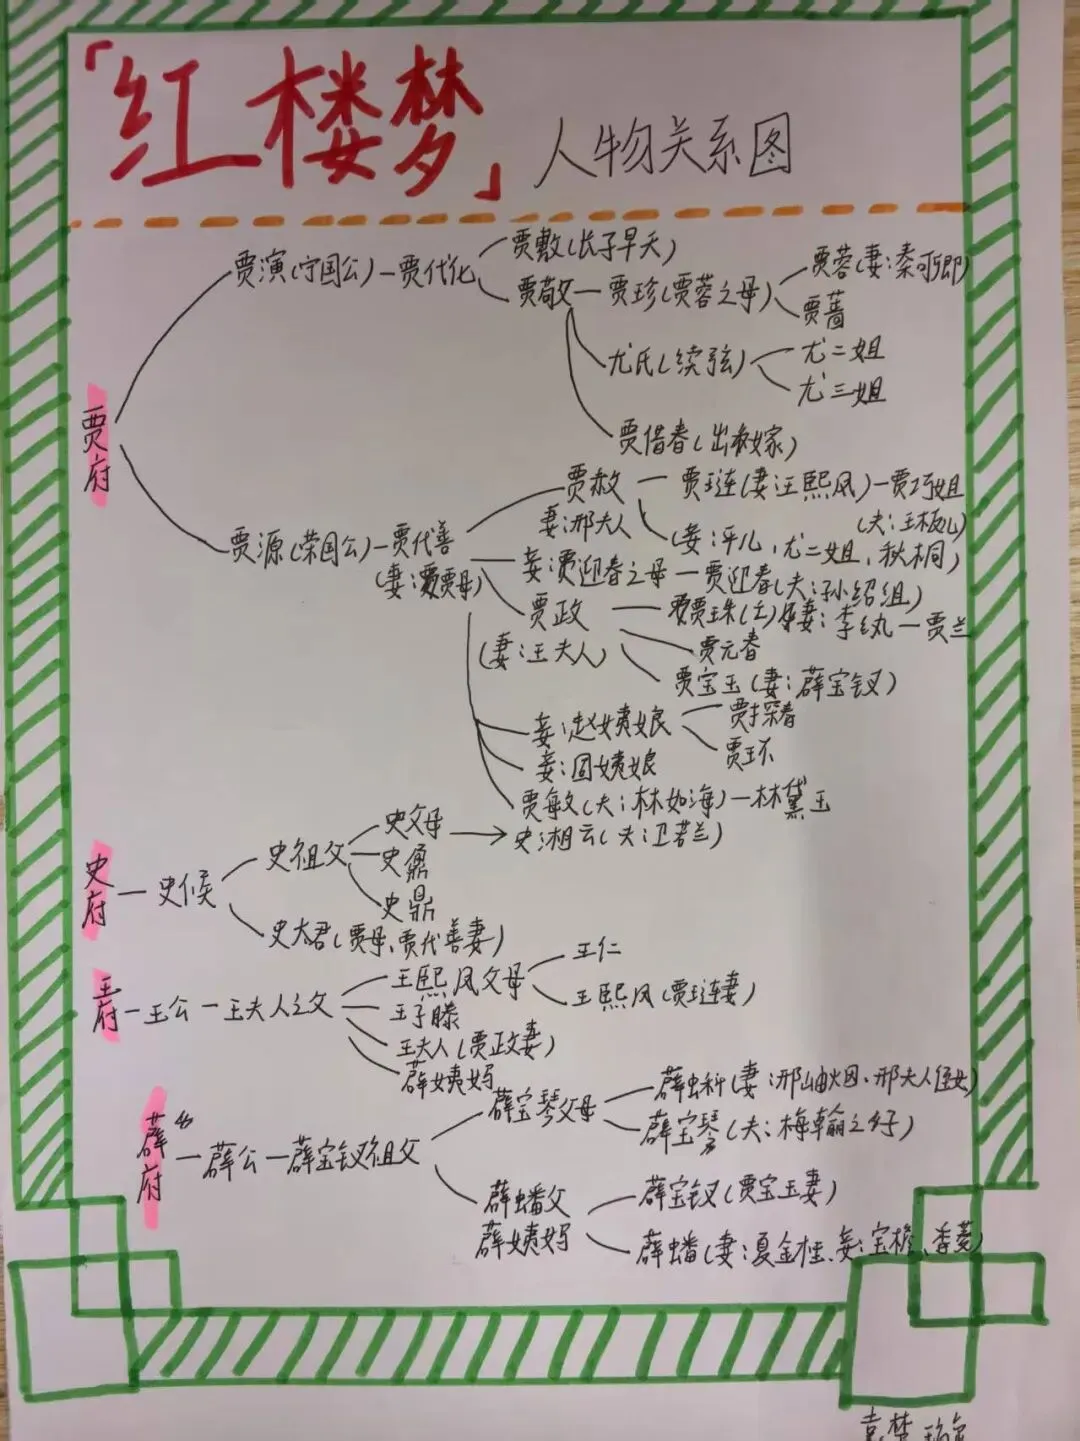 「红楼梦」人物关系图
贾演(宁国公)—贾代化
贾敷(长子早夭)
贾敬—贾珍(贾蓉之母)
贾蓉(妻:秦可卿)
贾蔷
尤氏(续弦)
尤二姐
尤三姐
贾惜春(出嫁)
贾府
贾源(荣国公)—贾代善
(妻:贾母)
贾赦—贾琏(妻:王熙凤)—贾巧姐
妻:邢夫人
(夫:王板儿)
(妾:平儿,尤二姐、秋桐)
妾:贾迎春之母—贾迎春(夫:孙绍组)
贾政—贾珠(亡)妻:李纨—贾兰
(妻:王夫人)
贾元春
贾宝玉(妻:薛宝钗)
妾:赵姨娘
贾探春
贾环
妾:周姨娘
贾敏(夫:林如海)—林黛玉
史府—史候
史祖父
史父母→史湘云(夫:卫若兰)
史鼐
史鼎
史太君(贾母、贾代善妻)
王府—王公—王夫人之父
王熙凤父母
王仁
王熙凤(贾琏妻)
王子滕
王夫人(贾政妻)
薛姨妈
薛府—薛公—薛宝钗祖父
薛宝琴父母
薛蝌(妻:邢岫烟、邢夫人侄女)
薛宝琴(夫:梅翰之子)
薛蟠父
薛姨妈
薛宝钗(贾宝玉妻)
薛蟠(妻:夏金桂、妾:宝蟾、香菱)